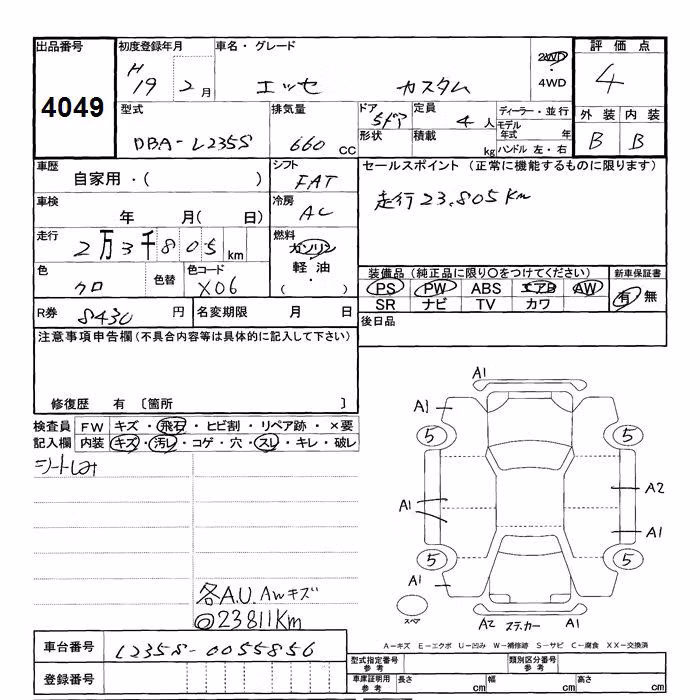 出品番号 初度登録年月 車名・グレード 2WD 評価点
4049 H19 2月 エッセ カスタム 4WD 4
型式 排気量 ドア 定員 ディーラー・並行 外装 内装
DBA-L235S 660CC 5ドア 4人 モデル年式 年 B B
形状 積載 kg ハンドル 左・右
車歴 シフト セールスポイント (正常に機能するものに限ります)
自家用・( ) FAT 走行23.805Km
車検 冷房
年 月( 日) AC
走行 2万3千805km 燃料 ガソリン
軽油
・( )
色 クロ 色替 色コード X06
装備品(純正品に限り○をつけてください) 新車保証書
PS PW ABS エアB AW 有 無
SR ナビ TV カワ
R券 8430円 名変期限 月 日 後日品
注意事項申告欄(不具合内容等は具体的に記入して下さい)
修復歴 有 〔箇所 〕
検査員 FW キズ・飛石・ヒビ割・リペア跡・×要
記入欄 内装 キズ・汚レ・コゲ・穴・スレ・キレ・破レ
各A.U.AWキズ
◎23811Km
A1
A1
5 5
A2
A1
A1
5 5
A1
スペア A2 ステッカー A1
車台番号 L235S-0055856
登録番号
A-キズ E-エクボ U-凹み W-補修跡 S-サビ C-腐食 XX-交換済
型式指定番号 参考 類別区分番号 参考
車庫証明用 参考 長さ cm 幅 cm 高さ cm